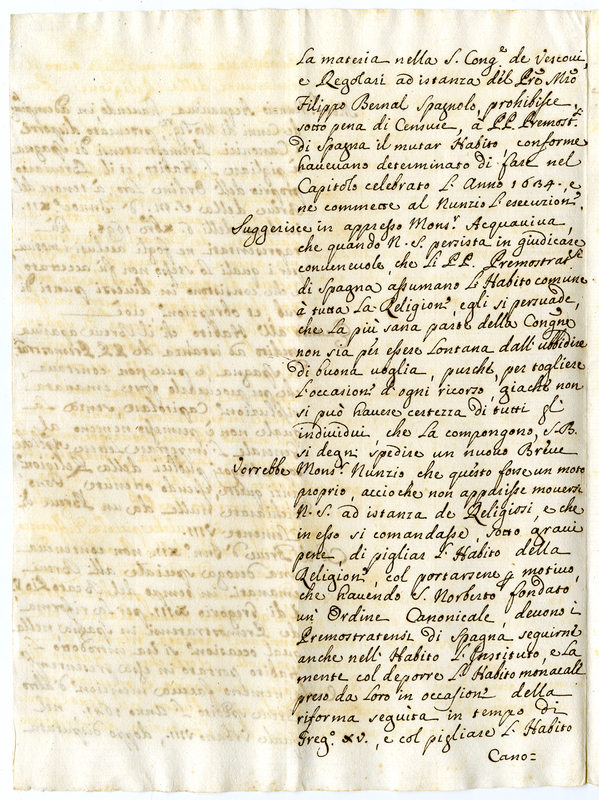 la materia nella S. Cong.e de Vescovi,
e Regolari ad istanza del Pre Mro
Filippo Bernal Spagnolo, prohibisse
sotto pena di Censure, à PP. Premost.i
di Spagna il mutar Habito, conforme
haueuano determinato di fare nel
Capitolo celebrato l'Anno 1634. e
ne commette al Nunzio l'esecuzion.e
Suggerisce in appresso Mons.r Acquaviva,
che quando N. S. persista in giudicare
conueneuole, che li PP. Premostrat.si
di Spagna assumano l'Habito comune
à tutta la Religion.e, egli si persuade,
che la più sana parte della Congne
non sia per essere lontana dall'ubbidire
di buona uoglia, purchè, per togliere
l'occasion.e d'ogni ricorso, giachè non
si può hauere certezza di tutti gl'
individui, che la compongono, S. B.
si degni spedire un nuouo Breue
Vorrebbe Mons.r Nunzio che questo fosse un moto
proprio, acciochè non apparisse mouersi
N. S. ad istanza de Religiosi, e che
in esso si comandasse, sotto graui
pene, di pigliar l'Habito della
Religion.e, col portarsene p motiuo,
che hauendo S. Norberto fondato
un'Ordine Canonicale, deuono i
Premostratensi di Spagna seguirne
anche nell'Habito l'Instituto, e la
mente col deporre l'Habito monacale
preso da loro in occasion.e della
riforma seguita in tempo di
Greg.o XV., e col pigliare l'Habito
Cano=